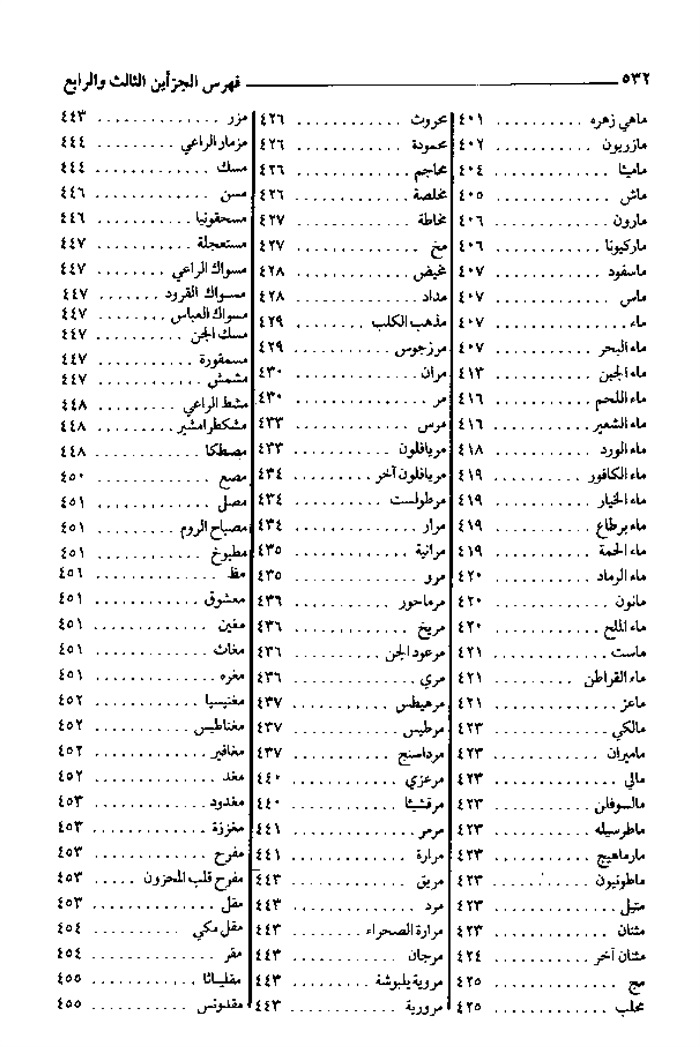 ٥٣٢ فهرس الجزأين الثالث والرابع
ماهي زهره .......... ٤٠١
مازريون .......... ٤٠٢
ماميثا .......... ٤٠٤
ماش .......... ٤٠٥
مارون .......... ٤٠٦
ماركيونا .......... ٤٠٦
ماسفود .......... ٤٠٧
ماس .......... ٤٠٧
ماء .......... ٤٠٧
ماء البحر .......... ٤٠٧
ماء الجبن .......... ٤١٣
ماء اللحم .......... ٤١٦
ماء الشعير .......... ٤١٦
ماء الورد .......... ٤١٨
ماء الكافور .......... ٤١٩
ماء الخيار .......... ٤١٩
ماء برطاع .......... ٤١٩
ماء الحمة .......... ٤١٩
ماء الرماد .......... ٤٢٠
مانون .......... ٤٢٠
ماء الملح .......... ٤٢٠
ماست .......... ٤٢١
ماء القراطن .......... ٤٢١
ماعز .......... ٤٢١
مالكي .......... ٤٢٣
ماميران .......... ٤٢٣
مالي .......... ٤٢٣
مالسوفلن .......... ٤٢٣
ماطرسيله .......... ٤٢٣
مارماهيج .......... ٤٢٣
ماطونيون .......... ٤٢٣
متيل .......... ٤٢٣
مثنان .......... ٤٢٣
مثنان آخر .......... ٤٢٤
مج .......... ٤٢٥
محلب .......... ٤٢٥
محروث .......... ٤٢٦
محمودة .......... ٤٢٦
محاجم .......... ٤٢٦
مخلصة .......... ٤٢٦
مخاطة .......... ٤٢٧
مخ .......... ٤٢٧
مخيض .......... ٤٢٨
مداد .......... ٤٢٨
مذهب الكلب .......... ٤٢٩
مرزجوس .......... ٤٢٩
مران .......... ٤٣٠
مر .......... ٤٣٠
مرس .......... ٤٣٣
مريافلون .......... ٤٣٣
مريافلون آخر .......... ٤٣٤
مرطولست .......... ٤٣٤
مرار .......... ٤٣٤
مرانية .......... ٤٣٥
مرو .......... ٤٣٥
مرماحور .......... ٤٣٦
مريخ .......... ٤٣٦
مرعود الجن .......... ٤٣٦
مري .......... ٤٣٦
مرهيطس .......... ٤٣٧
مرطيس .......... ٤٣٧
مرداسنج .......... ٤٣٧
مرعزي .......... ٤٤٠
مرقشيثا .......... ٤٤٠
مرمر .......... ٤٤١
مرارة .......... ٤٤١
مريق .......... ٤٤٣
مرد .......... ٤٤٣
مرارة الصحراء .......... ٤٤٣
مرجان .......... ٤٤٣
مروية يلبوشة .......... ٤٤٣
مرورية .......... ٤٤٣
مزر .......... ٤٤٣
مزمار الراعي .......... ٤٤٤
مسك .......... ٤٤٤
مسن .......... ٤٤٦
مسحقونيا .......... ٤٤٦
مستعجلة .......... ٤٤٧
مسواك الراعي .......... ٤٤٧
مسواك القرود .......... ٤٤٧
مسواك العباس .......... ٤٤٧
مسك الجن .......... ٤٤٧
مسمقورة .......... ٤٤٧
مشمش .......... ٤٤٧
مشط الراعي .......... ٤٤٨
مشكطرامشير .......... ٤٤٨
مصطكا .......... ٤٤٨
مصع .......... ٤٥٠
مصل .......... ٤٥١
مصباح الروم .......... ٤٥١
مطبوخ .......... ٤٥١
مظ .......... ٤٥٦
معشوق .......... ٤٥١
مغين .......... ٤٥١
مغاث .......... ٤٥١
مغره .......... ٤٥١
مغنيسيا .......... ٤٥٢
مغناطيس .......... ٤٥٢
مغافير .......... ٤٥٢
مغد .......... ٤٥٢
مغدود .......... ٤٥٣
مغززة .......... ٤٥٣
مفرح .......... ٤٥٣
مفرح قلب المحزون .......... ٤٥٣
مقل .......... ٤٥٣
مقل مكي .......... ٤٥٤
مقر .......... ٤٥٤
مقلياثا .......... ٤٥٥
مقدونس .......... ٤٥٥